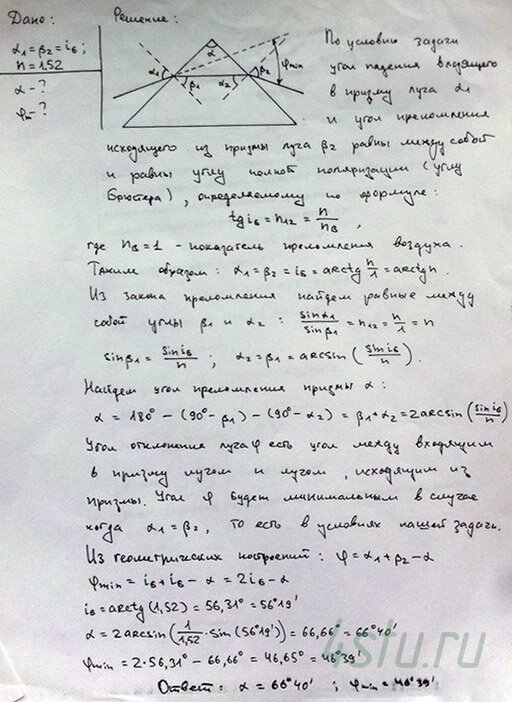 Дано:
Решение:
α₁ = β₂ = i_Б ;
n = 1.52
α - ?
φ_м - ?
α
α₁
β₁
α₂
β₂
φmin
По условию задачи
угол падения входящего
в призму луча α₁
и угол преломления
исходящего из призмы луча β₂ равны между собой
и равны углу полной поляризации (углу
Брюстера), определяемому по формуле:
tg i_Б = n₁₂ = n/n_В ,
где n_В = 1 - показатель преломления воздуха.
Таким образом: α₁ = β₂ = i_Б = arctg n/1 = arctg n.
Из закона преломления найдем равные между
собой углы β₁ и α₂ : sinα₁/sinβ₁ = n₁₂ = n/1 = n
sinβ₁ = sin i_Б/n ; α₂ = β₁ = arcsin (sin i_Б/n).
Найдем угол преломления призмы α:
α = 180° - (90° - β₁) - (90° - α₂) = β₁ + α₂ = 2arcsin (sin i_Б/n)
Угол отклонения луча φ есть угол между входящим
в призму лучом и лучом, исходящим из
призмы. Угол φ будет минимальным в случае
когда α₁ = β₂, то есть в условиях нашей задачи.
Из геометрических построений: φ = α₁ + β₂ - α
φmin = i_Б + i_Б - α = 2i_Б - α
i_Б = arctg (1,52) = 56,31° = 56°19'
α = 2arcsin (1/1,52 · sin (56°19')) = 66,66° = 66°40'
φmin = 2·56,31° - 66,66° = 46,65° = 46°39'
Ответ: α = 66°40' ; φmin = 46°39'
4stu.ru